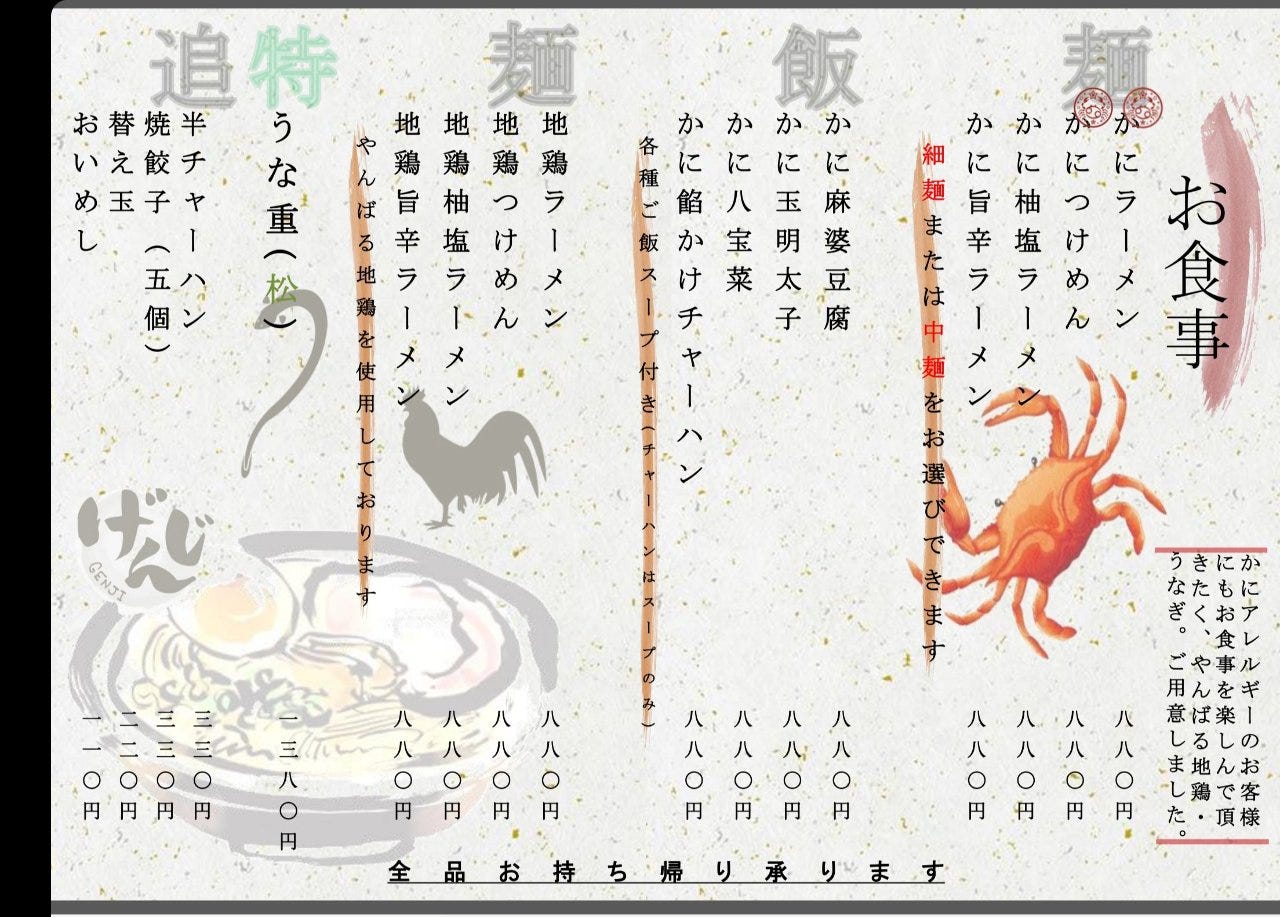 お食事
かにアレルギーのお客様
にもお食事を楽しんで頂
きたく、やんばる地鶏・
うなぎ。ご用意しました。
麺
かにラーメン 八八〇円
かにつけめん 八八〇円
かに柚塩ラーメン 八八〇円
かに旨辛ラーメン 八八〇円
細麺または中麺をお選びできます
飯
かに麻婆豆腐 八八〇円
かに玉明太子 八八〇円
かに八宝菜 八八〇円
かに餡かけチャーハン 八八〇円
各種ご飯スープ付き(チャーハンはスープのみ)
麺
地鶏ラーメン 八八〇円
地鶏つけめん 八八〇円
地鶏柚塩ラーメン 八八〇円
地鶏旨辛ラーメン 八八〇円
やんばる地鶏を使用しております
特
うな重(松) 一三八〇円
追
半チャーハン 三三〇円
焼餃子(五個) 三三〇円
替え玉 二二〇円
おいめし 一一〇円
げんじ
GENJI
全品お持ち帰り承ります